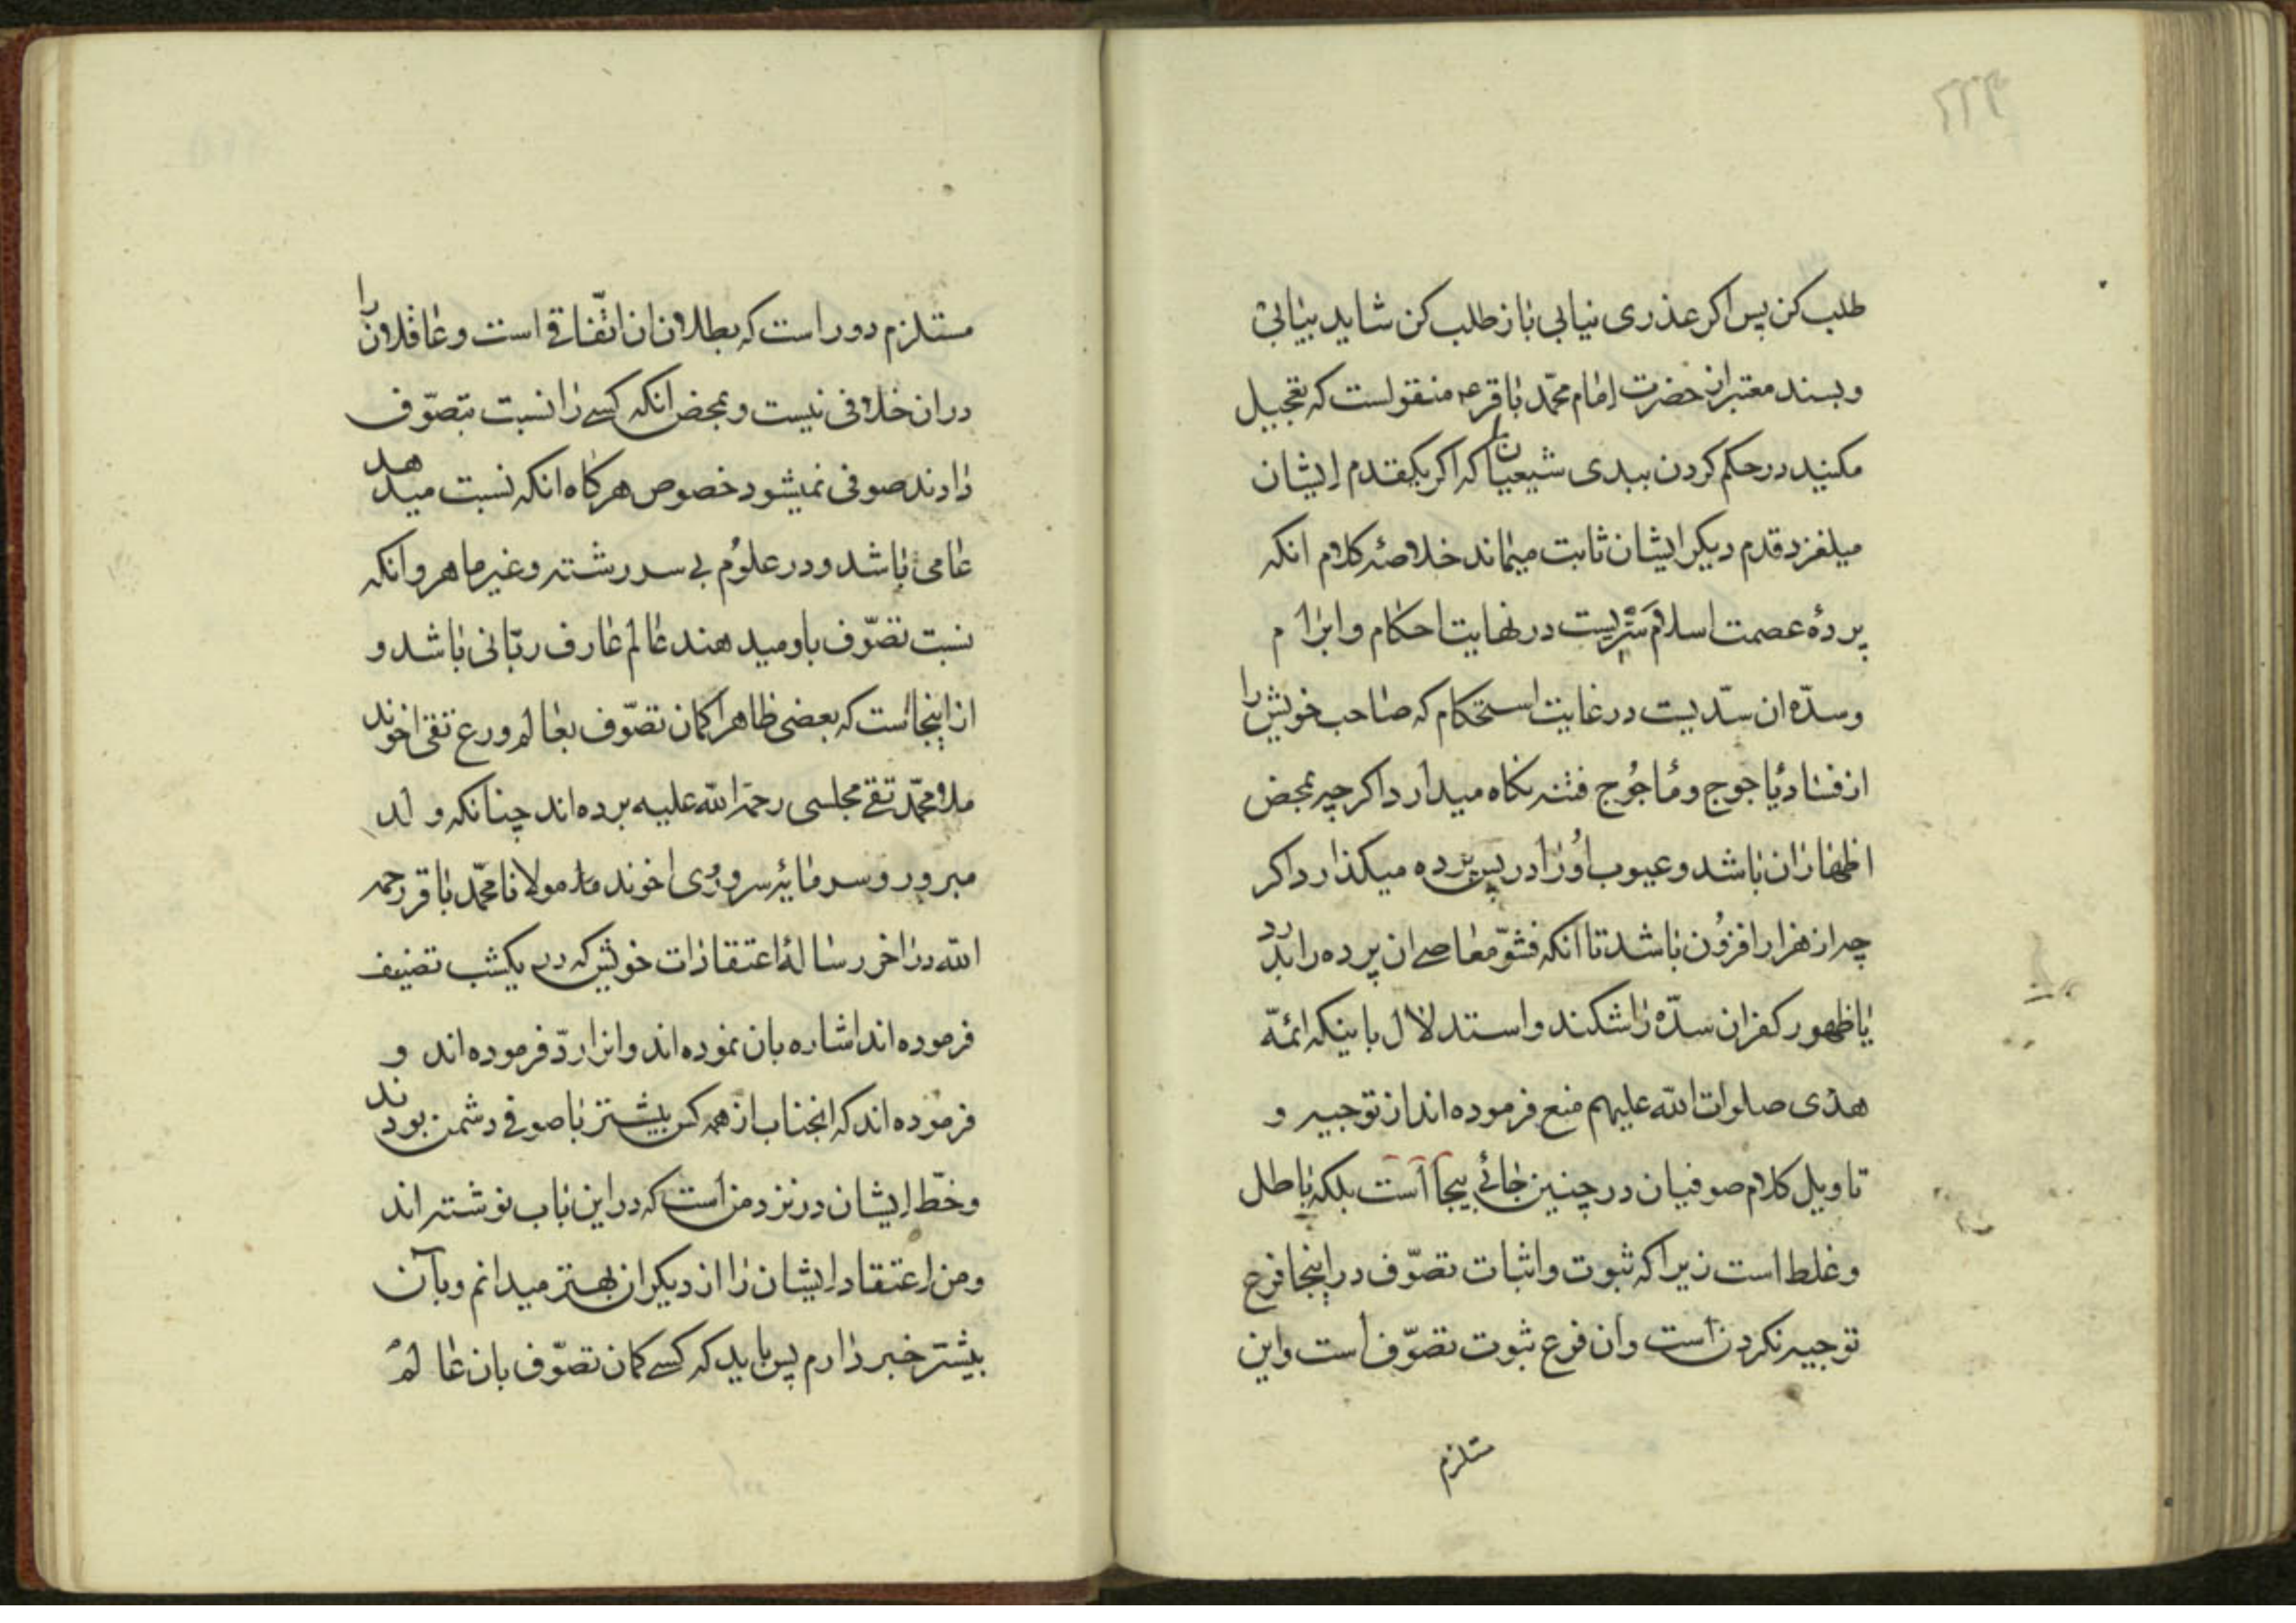 طلب کن پس اکر عذری نیابی باز طلب کن شاید بیابی
و بسند معتبر از حضرت امام محمّد باقر ع منقولست که تعجیل
مکنید در حکم کردن ببدی شیعیان ما که اکر یکقدم ایشان
میلغزد قدم دیکر ایشان ثابت میماند خلاصهٔ کلام انکه
پردهٔ عصمت اسلام ستریست در نهایت احکام و ابرام
و سدّه ان سدّیست در غایت استحکام که صاحب خویش را
از فساد یأجوج و مأجوج فتنه نکاه میدارد اکرچه بمحض
اظهار ان باشد و عیوب او را در پس پرده میکذارد اکر
چه از هزار افزون باشد تا انکه فشوّ معاصی ان پرده را بدرد
یا ظهور کفر ان سدّه را شکند و استدلال باینکه ائمّه
هدی صلوات الله علیهم منع فرموده اند از توجیه و
تاویل کلام صوفیان در چنین جائی بیجا است بلکه باطل
و غلط است زیرا که ثبوت و اثبات تصوّف در اینجا فرع
توجیه نکردن است و ان فرع ثبوت تصوّف است و این
ستلزم
مستلزم دور است که بطلان ان اتّفاقی است و عاقلان را
در ان خلافی نیست و بمحض انکه کسی را نسبت بتصوّف
دادند صوفی نمیشود خصوص هرکاه انکه نسبت میدهد
عامی باشد و در علوم بی سررشته و غیر ماهر و انکه
نسبت تصوّف باو میدهند عالم عارف ربّانی باشد و
از اینجاست که بعضی ظاهرا کمان تصوّف بعالم ورع تقی اخوند
ملا محمّد تقی مجلسی رحمة الله علیه برده اند چنانکه ولد
مبرور و سرمایهٔ سروری اخوند ملا مولانا محمّد باقر رحمه
الله در اخر رسالهٔ اعتقادات خویش که در یکشب تصنیف
فرموده اند اشاره بان نموده اند و انرا ردّ فرموده اند و
فرموده اند که انجناب از همه کس بیشتر با صوفی دشمن بودند
و خطّ ایشان در نزد من است که در این باب نوشته اند
و من اعتقاد ایشان را از دیکران بهتر میدانم و بآن
بیشتر خبر دارم پس باید که کسی کمان تصوّف بان عالم